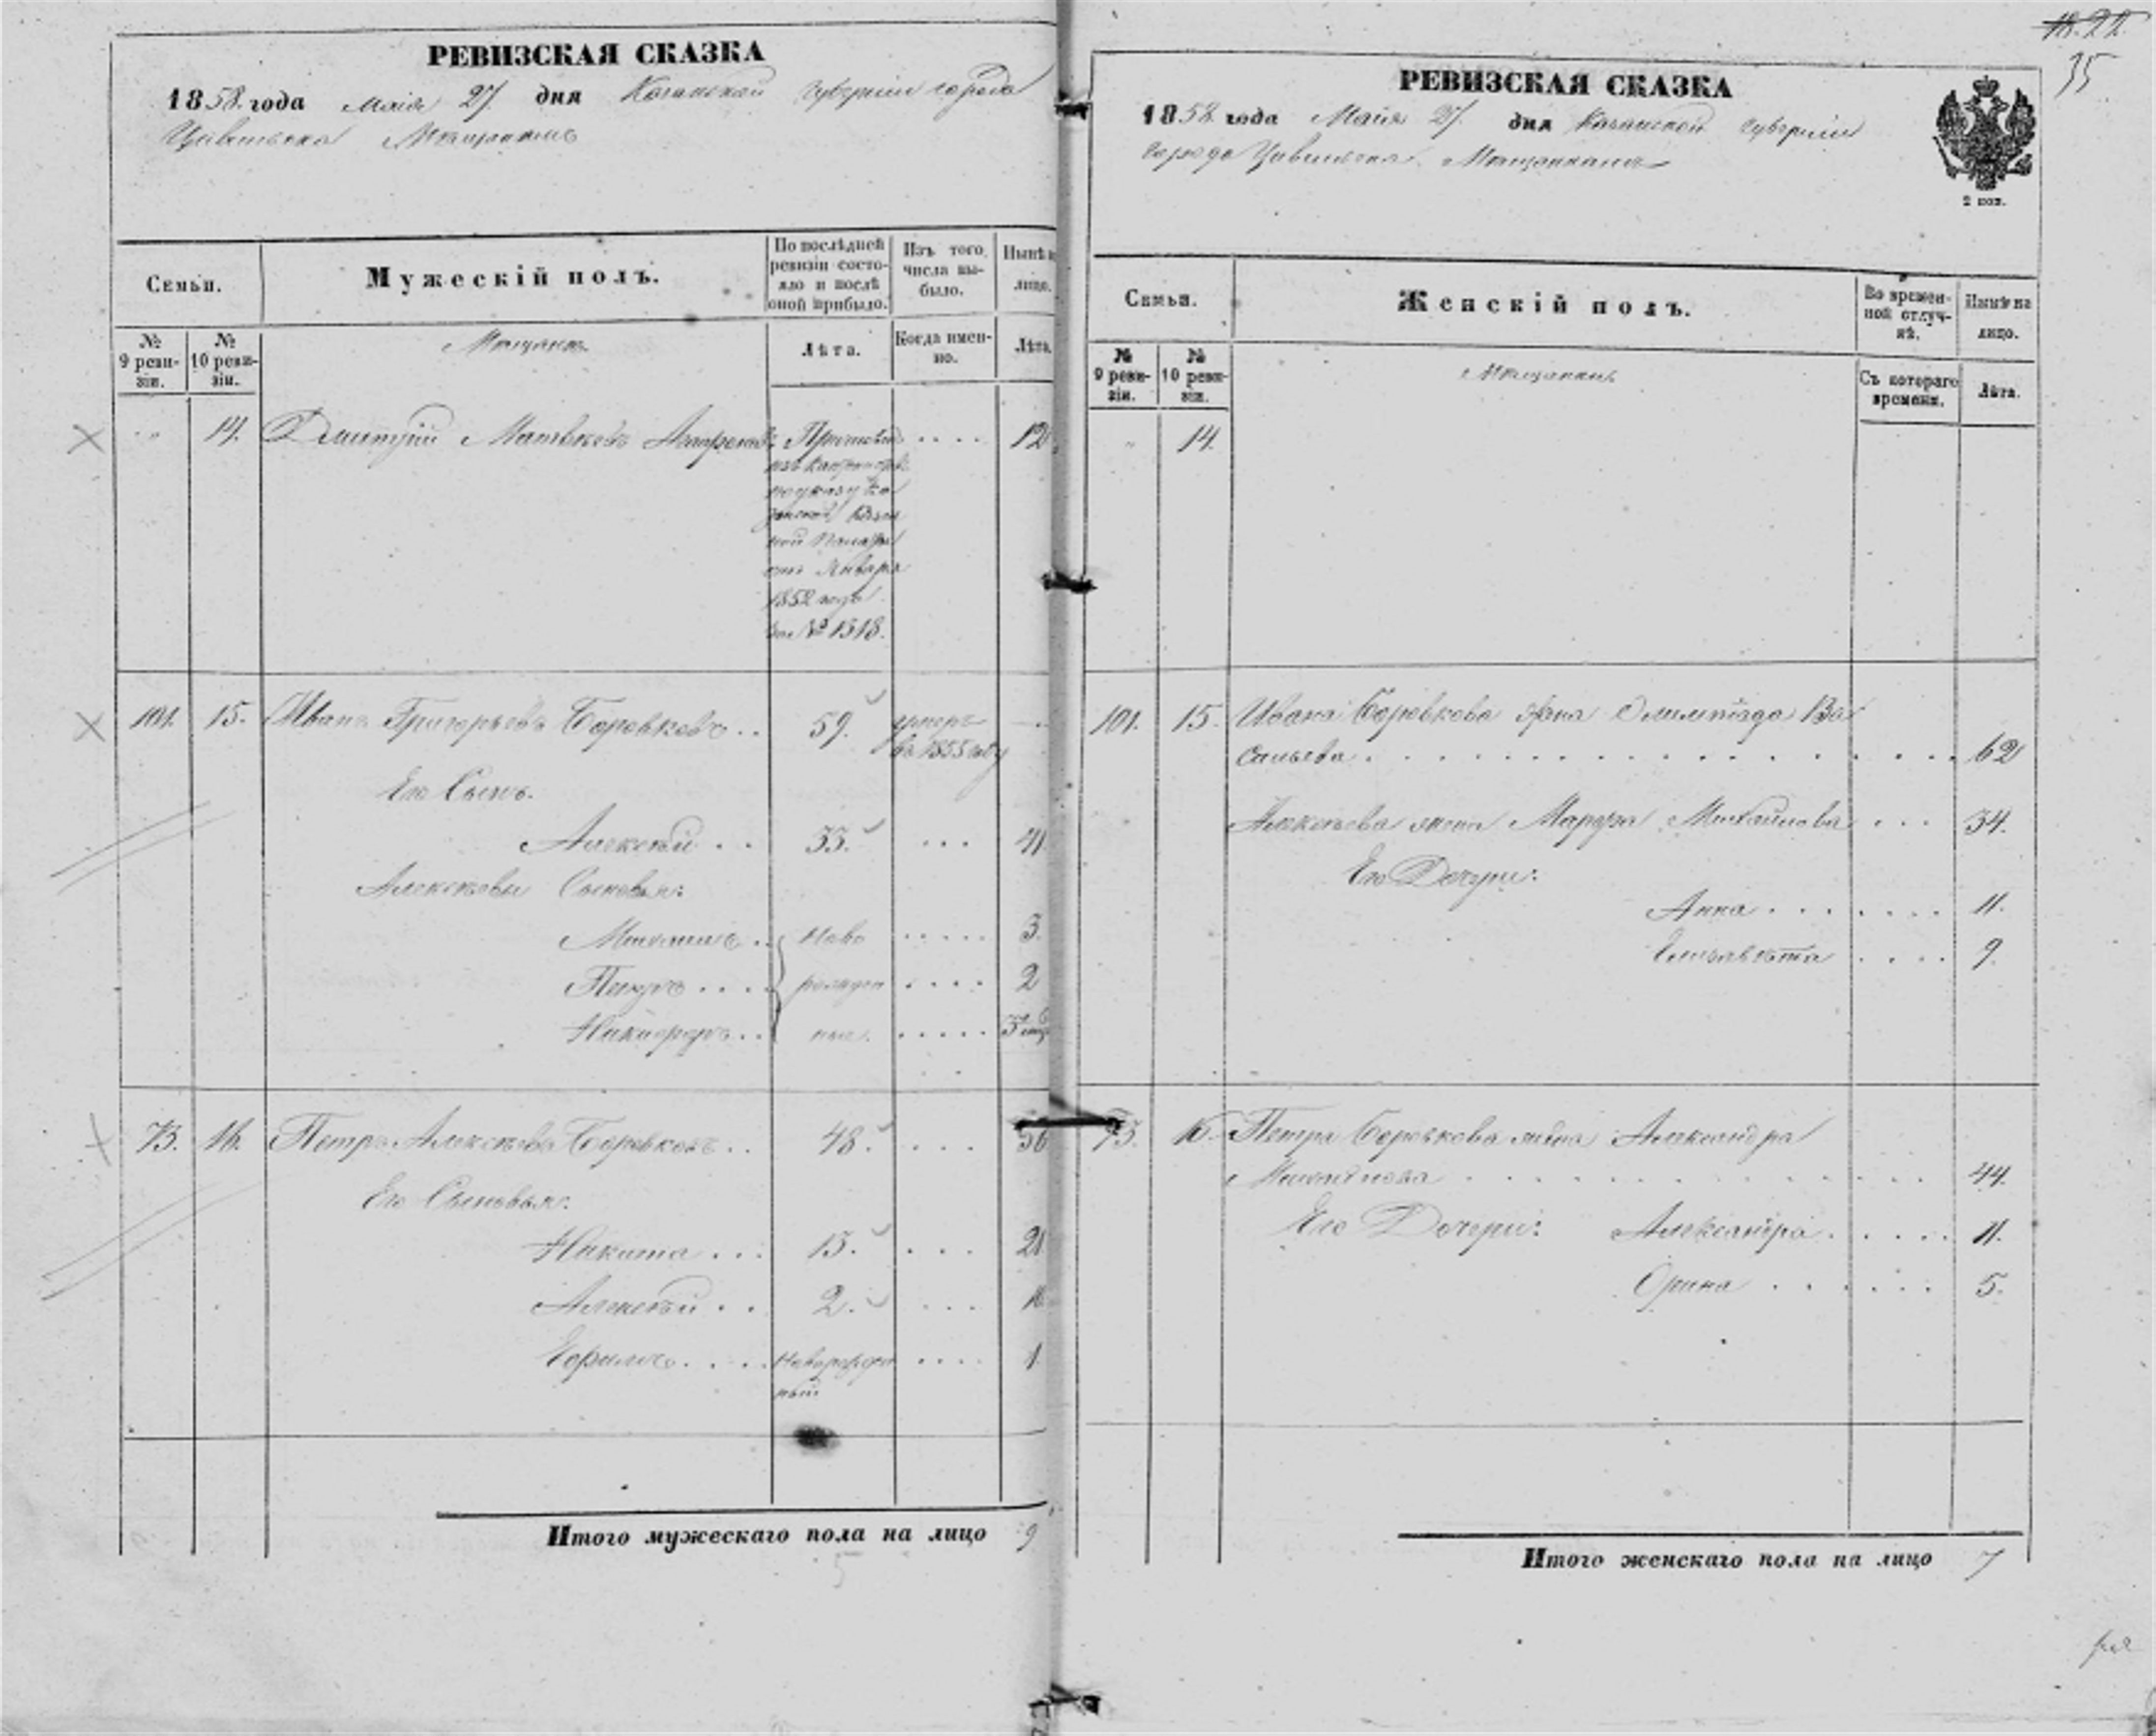 РЕВИЗСКАЯ СКАЗКА
1858 года Маія 27 дня Казанской Губерніи города
Цивильска Мѣщанамъ
Семьи.
Мужескій полъ.
По послѣдней ревизіи состояло и послѣ оной прибыло.
Изъ того числа выбыло.
Нынѣ
лицо.
№ 9 ревизіи.
№ 10 ревизіи.
Мѣщанъ
Лѣта.
Когда именно.
Лѣта.
14. Дмитрій Матвѣевъ .... 12
по указу Казанской Казенной Палаты
отъ Января
1852 года
за № 1318.
101. 15. Иванъ Григорьевъ Боровковъ .. 59. умеръ въ 1855 году
Его Сынъ.
Алексѣй .. 33. ... 41
Алексѣевы Сыновья:
Михаилъ .. Ново ..... 3.
Петръ .... рожден .... 2
Никифоръ .. ные. .....
73. 16. Петръ Алексѣевъ Боровковъ .. 48. .... 56
Его Сыновья:
Никита ... 13. ... 21
Алексѣй .. 2. ...
Ефимъ .... Новорожден .... 1
ный
Итого мужескаго пола на лицо 9
18. 22
35
РЕВИЗСКАЯ СКАЗКА
1858 года Маія 27 дня Казанской Губерніи
города Цивильска Мѣщанкамъ
2 коп.
Семьи.
Женскій полъ.
Во временной отлучкѣ.
Нынѣ на лицо.
№ 9 ревизіи.
№ 10 ревизіи.
Мѣщанъ
Съ котораго времени.
Лѣта.
" 14.
101. 15. Ивана Боровкова жена Олимпіада Ва
сильева ............. 62
Алексѣева жена Марфа Михайлова ... 34.
Его Дочери:
Анна ....... 11.
Елизавѣта .... 9.
73. 16. Петра Боровкова жена Александра
Михайлова ............ 44.
Его Дочери: Александра ..... 11.
Орина ...... 5.
Итого женскаго пола на лицо 7